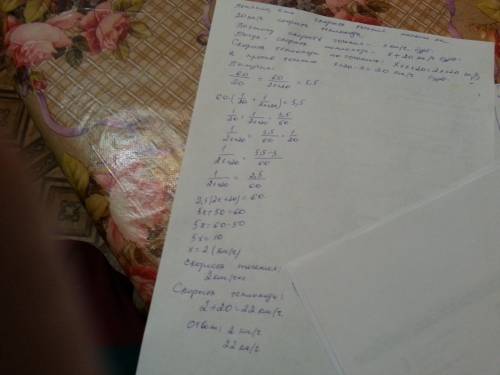 20 км/ч скорость теплохода.
Поэтому скорость течения - x км/ч
тогда - скорость теплохода - x + 20 км/ч
Скорость теплохода по течению: x+x+20=2x+20 км/ч
а против течения x+20-x=20 км/ч
Получим:
60/20 + 60/2x+20 = 5,5
60·(1/20 + 1/2x+20)=5,5
1/20 + 1/2x+20 = 5,5/60
1/2x+20 = 5,5/60 - 1/20
1/2x+20 = 5,5-3/60
1/2x+20 = 2,5/60
2,5(2x+20)=60
5x+50=60
5x=60-50
5x=10
x=2 (км/ч)
Скорость течения:
2 км/ч
Скорость теплохода:
2+20=22 км/ч
Ответ: 2 км/ч
22 км/ч